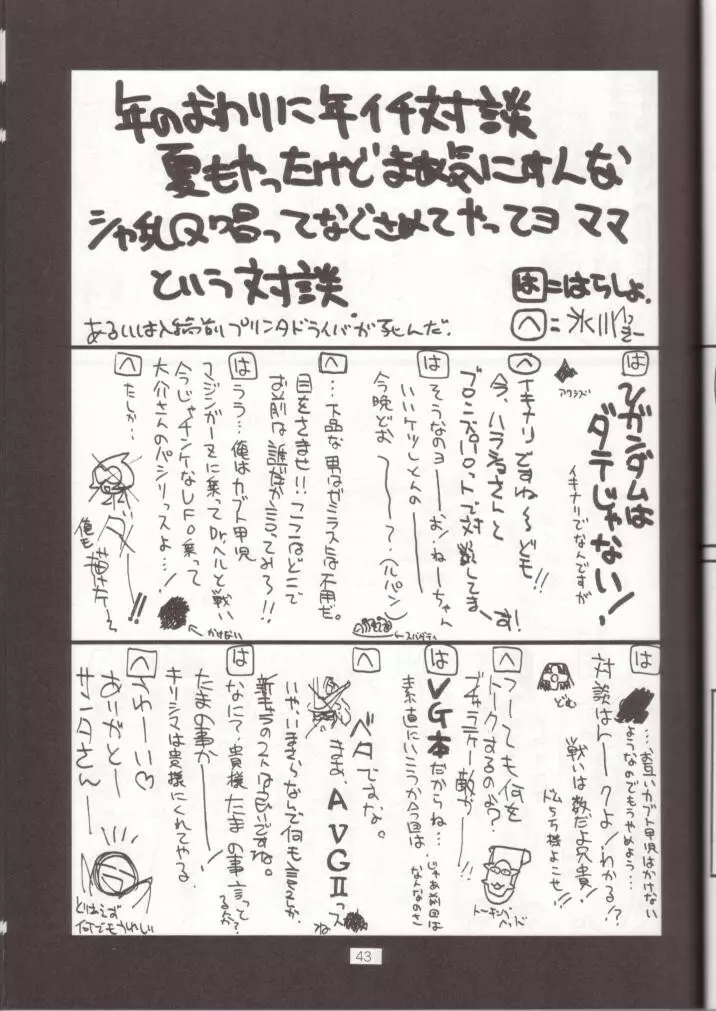 年のおわりに年イチ対談
夏もやったけどまあ気にすんな
シャ乱Q唱ってなぐさめてやってヨ ママ
という対談
は=はらしょ.
へ=氷川
あるいは入稿前プリンタドライバが死んだ.
は
ひガンダムは
ダテじゃない!
イキナリでなんですが
アクシズ
へ
イキナリですね〜どもっ!!
今、ハラショさんと
ブロンズパロットで対談してまーす!
は
そうなのヨ――お!ねーちゃん
いいケツしとんの――
今晩どお――?
へ
…下品な男はゼミラスには不用だ。
目をさませ!!ここはどこで
お前は誰だか言ってみろ!!
は
うう…俺はカブト甲児
マジンガーZに乗ってDr.ヘルと戦い
今じゃチンケなUFO乗って
大介さんのパシリっスよ…!
かけない
へ
たしか…
ダ――!!
俺も描けたろ
は
…お互いカブト甲児はかけない
ようなのでもうやめよう…
対談はトークよ!わかる!?
戦いは数だよ兄貴!
ドムらち機よこせ!!
どむ
へ
つーても何を
トークするのよ?
ブチャラティー敵か――!!
トーキングヘッド
は
VG本だからね…
素直にいこうか今回は
じゃあ前回は
なんなのさ
へ
ベタですな。
まさま、AVGIIっスね
いや、いまさらなんで何も言えんが、
新キャラの2人は良いですね。
は
なにっ?貴様たまの事言ってるんか?
たまの事か――!
キリシマは貴様にくれてやる.
へ
うわーい♡
ありがとー
サンタさん――
とりあえず
何でもうれしい
43